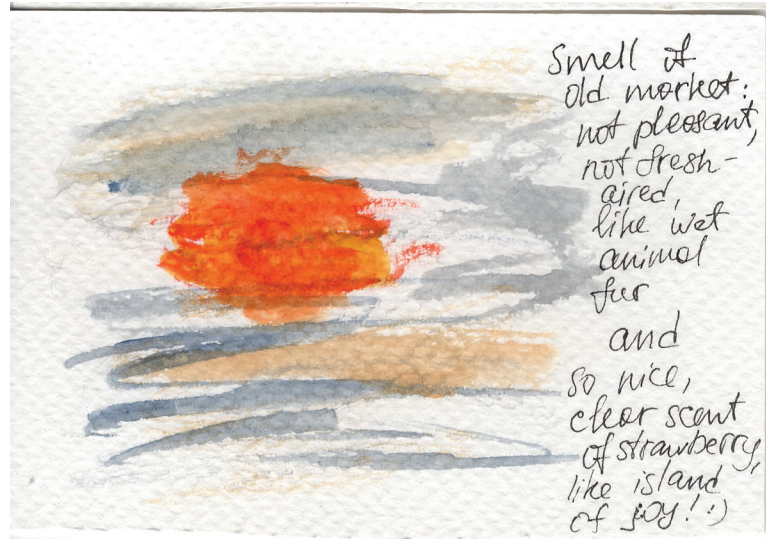 Smell of
old market:
not pleasant,
not fresh-
aired,
like wet
animal
fur
and
so nice,
clear scent
of strawberry,
like island
of joy! :)